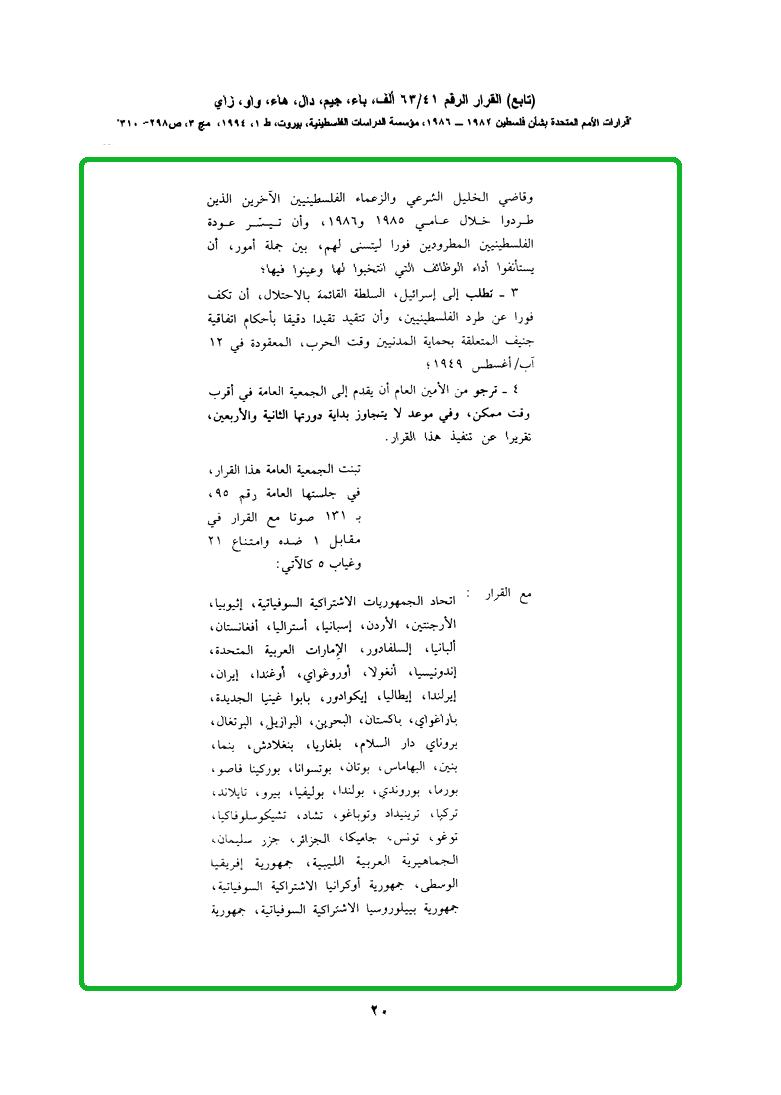 (تابع) القرار الرقم ٦٣/٤١ ألف، باء، جيم، دال، هاء، واو، زاي
"قرارات الأمم المتحدة بشأن فلسطين ١٩٨٢ – ١٩٨٦، مؤسسة الدراسات الفلسطينية، بيروت، ط ١، ١٩٩٤، مج ٣، ص٢٩٨- ٣١٠"
وقاضي الخليل الشرعي والزعماء الفلسطينيين الآخرين الذين
طردوا خلال عامي ١٩٨٥ و١٩٨٦، وأن تيسّر عودة
الفلسطينيين المطرودين فورا ليتسنى لهم، بين جملة أمور، أن
يستأنفوا أداء الوظائف التي انتخبوا لها وعينوا فيها؛
٣ ـ تطلب إلى إسرائيل، السلطة القائمة بالاحتلال، أن تكف
فورا عن طرد الفلسطينيين، وأن تتقيد تقيدا دقيقا بأحكام اتفاقية
جنيف المتعلقة بحماية المدنيين وقت الحرب، المعقودة في ١٢
آب/أغسطس ١٩٤٩؛
٤ ـ ترجو من الأمين العام أن يقدم إلى الجمعية العامة في أقرب
وقت ممكن، وفي موعد لا يتجاوز بداية دورتها الثانية والأربعين،
تقريرا عن تنفيذ هذا القرار.
تبنت الجمعية العامة هذا القرار،
في جلستها العامة رقم ٩٥،
بـ ١٣١ صوتا مع القرار في
مقابل ١ ضده وامتناع ٢١
وغياب ٥ كالآتي:
مع القرار : اتحاد الجمهوريات الاشتراكية السوفياتية، إثيوبيا،
الأرجنتين، الأردن، إسبانيا، أستراليا، أفغانستان،
ألبانيا، إلسلفادور، الإمارات العربية المتحدة،
إندونيسيا، أنغولا، أوروغواي، أوغندا، إيران،
إيرلندا، إيطاليا، إيكوادور، بابوا غينيا الجديدة،
باراغواي، باكستان، البحرين، البرازيل، البرتغال،
بروناي دار السلام، بلغاريا، بنغلادش، بنما،
بنين، البهاماس، بوتان، بوتسوانا، بوركينا فاصو،
بورما، بوروندي، بولندا، بوليفيا، بيرو، تايلاند،
تركيا، ترينيداد وتوباغو، تشاد، تشيكوسلوفاكيا،
توغو، تونس، جاميكا، الجزائر، جزر سليمان،
الجماهيرية العربية الليبية، جمهورية إفريقيا
الوسطى، جمهورية أوكرانيا الاشتراكية السوفياتية،
جمهورية بييلوروسيا الاشتراكية السوفياتية، جمهورية
٢٠